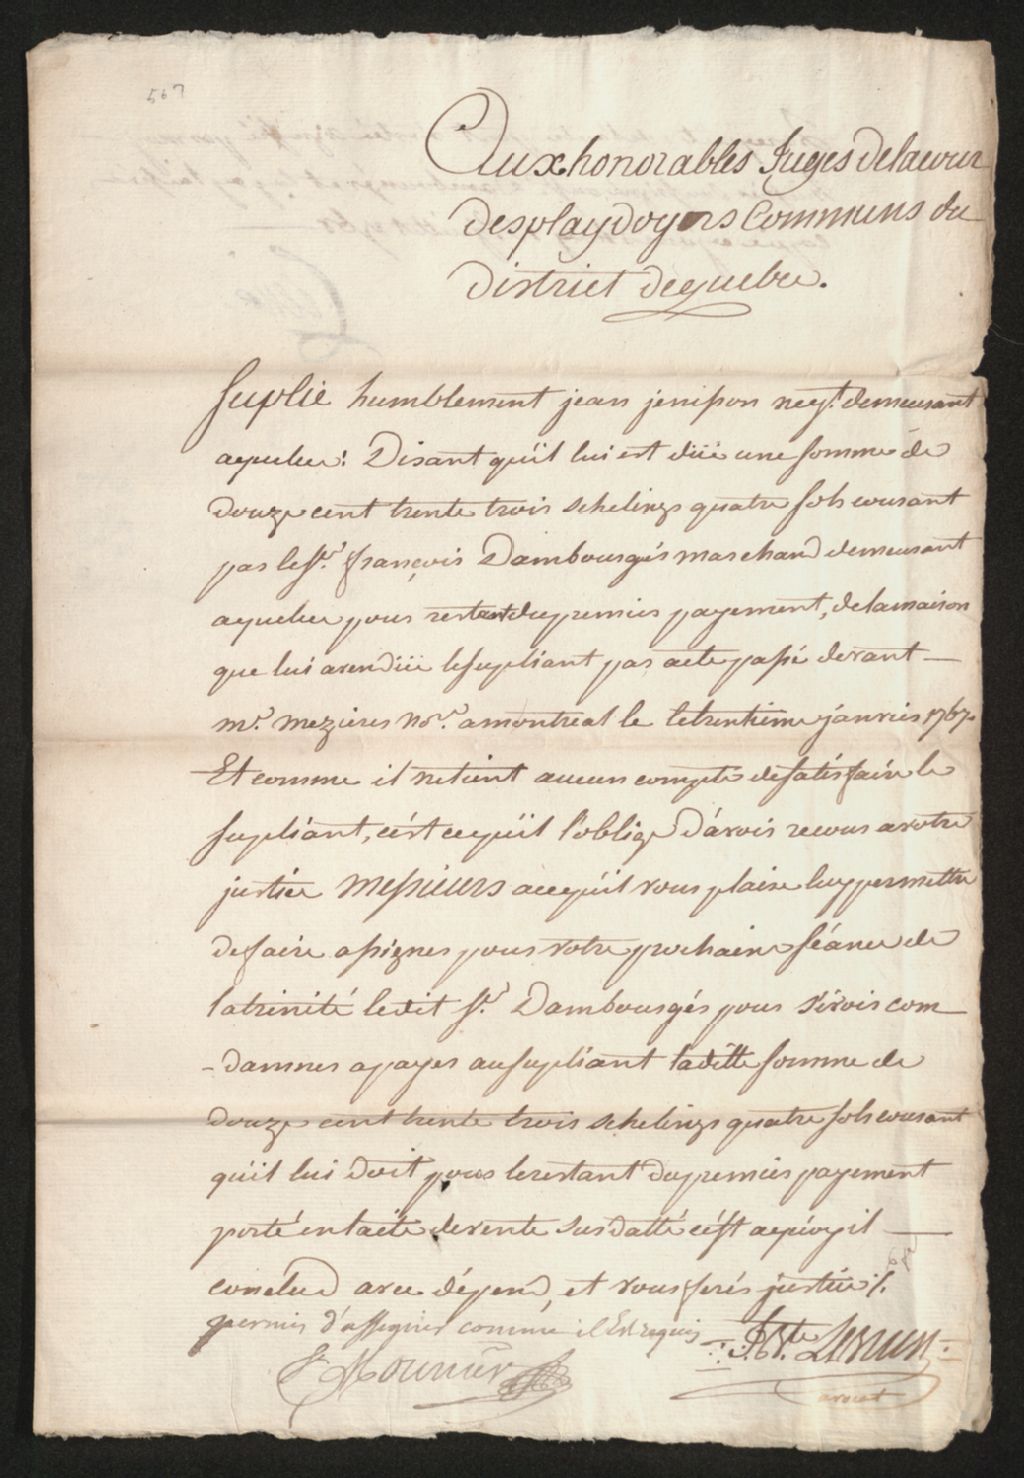 567
Aux honorables Juges de la cour
des playdoyers Communs du
District de quebec.
Suplie humblement jean jenison negt. demeurant
aquebec: Disant qu'il lui est düe une somme de
Douze cent trente trois schelings quatre sols courant
par le Sr. françois Dambourgés marchand demeurant
aquebec pour restant du premier payement, de la maison
que lui a vendüe le supliant par acte passé devant
mr. mezieres nore. a montreal le letrentieme janvier 1767.
Et comme il ne tient aucun compte de satisfaire le
supliant, c'ést ce qu'il l'oblige D'avoir recour a votre
justice Messieurs a ce qu'il vous plaise luy permettre
de faire assigner pour votre prochaine séance de
la trinité le dit Sr. Dambourgés pour s'évoir com
-damner a payer au supliant la ditte somme de
Douze cent trente trois schelings quatre sols courant
qu'il lui Doit pour le restant Du premier payement
porté en l'acte de vente sus datté c'ést a quoy il
conclud avec dépend, et vous ferés justice ./.
permis d'assigner comme il Est requis
JBte LeBrun
avocat
F. Mounier